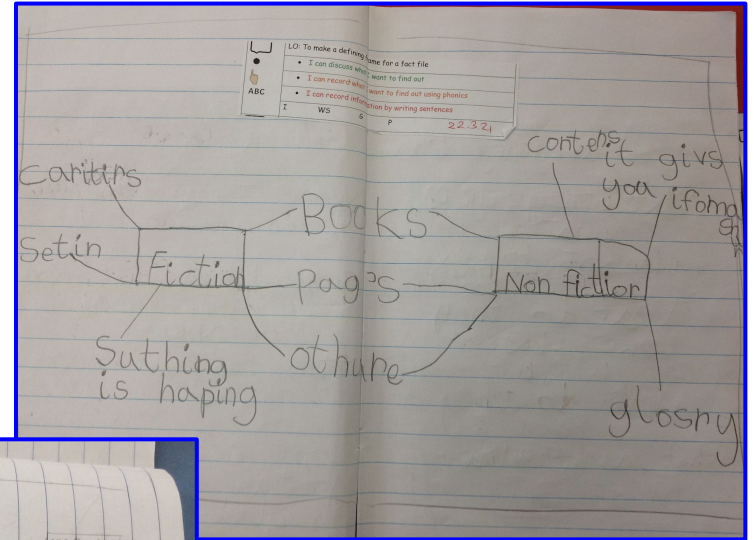 LO: To make a defining frame for a fact file
I can discuss what I want to find out
I can record what I want to find out using phonics
I can record information by writing sentences
ABC
I WS G P
22.3.21
caritirs
Setin
Fiction
Suthing
is haping
Books
pags
othure
contens
it givs
you ifoma
Non fiction
glosry